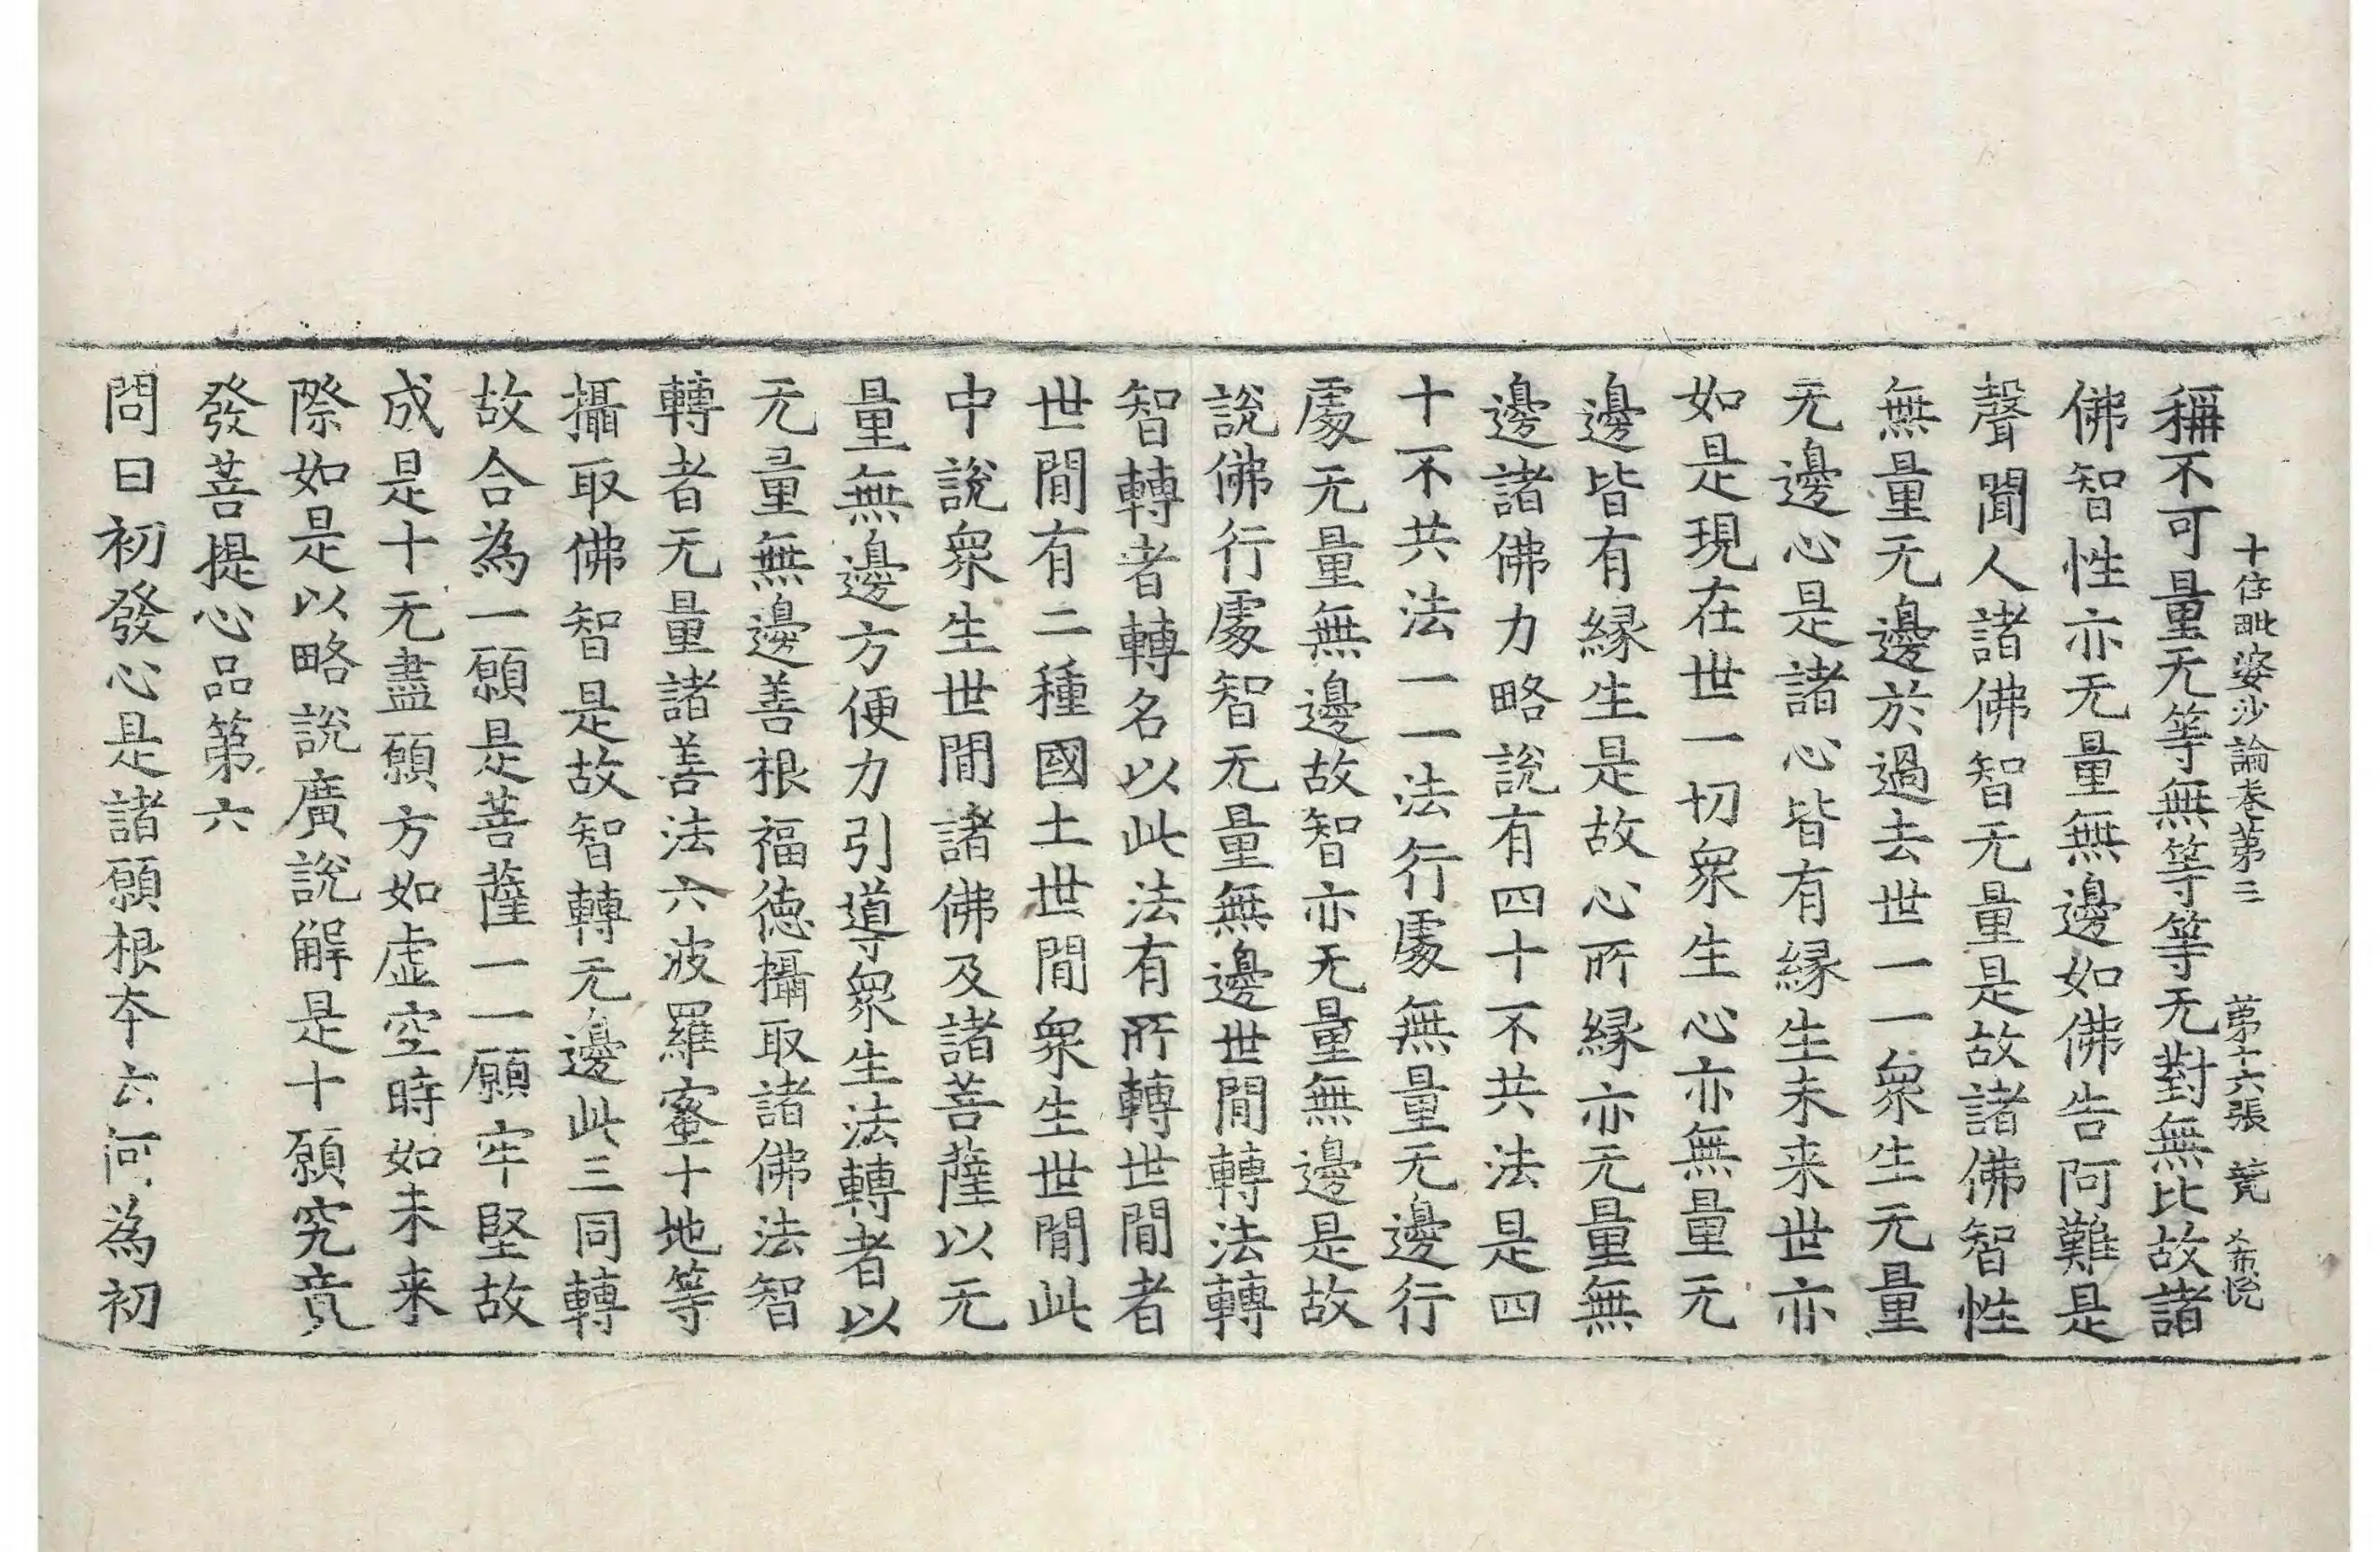 十住毗婆沙論卷第三　第十六張　竟　希悅
稱不可量无等無等等无對無比故諸
佛智性亦无量無邊如佛告阿難是
聲聞人諸佛智无量是故諸佛智性
無量无邊於過去世一一衆生无量
无邊心是諸心皆有縁生未来世亦
如是現在世一切衆生心亦無量无
邊皆有縁生是故心所縁亦无量無
邊諸佛力略說有四十不共法是四
十不共法一一法行處無量无邊行
處无量無邊故智亦无量無邊是故
說佛行處智无量無邊世間轉法轉
智轉者轉名以此法有所轉世間者
世間有二種國土世間衆生世間此
中說衆生世間諸佛及諸菩薩以无
量無邊方便力引導衆生法轉者以
无量無邊善根福德攝取諸佛法智
轉者无量諸善法六波羅蜜十地等
攝取佛智是故智轉无邊此三同轉
故合為一願是菩薩一一願牢堅故
成是十无盡願方如虛空時如未来
際如是以略說廣說解是十願究竟
發菩提心品第六
問曰初發心是諸願根本云何為初